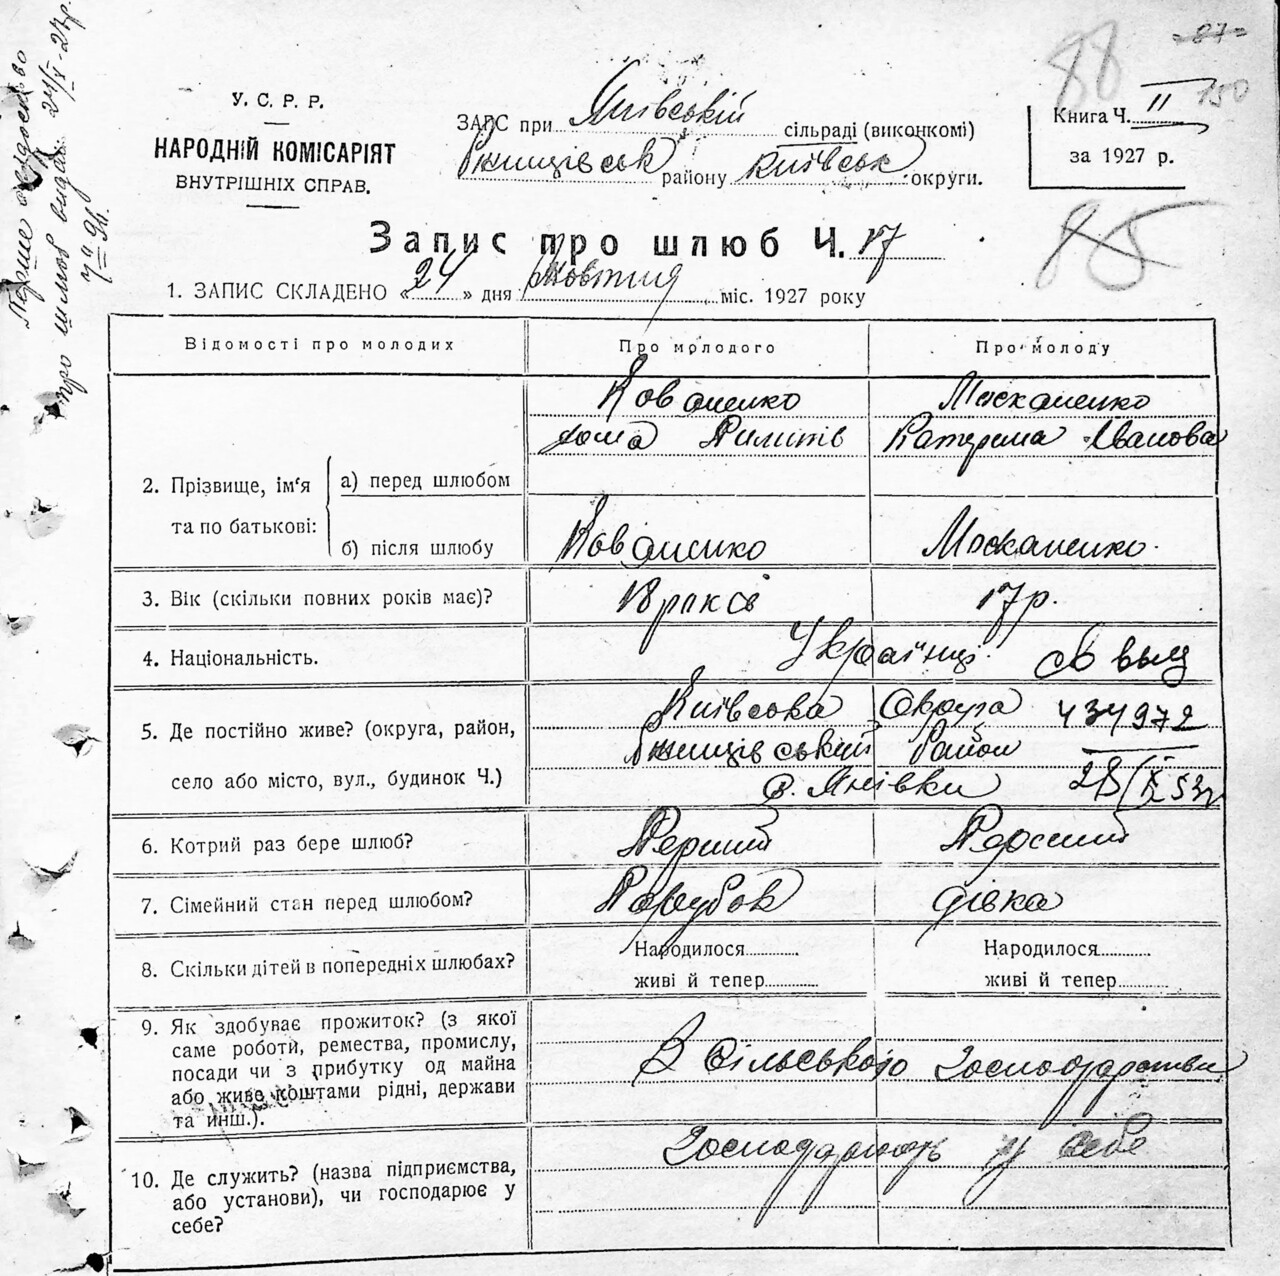 -87-
88
150
У. С. Р. Р.
НАРОДНІЙ КОМІСАРІЯТ
ВНУТРІШНІХ СПРАВ.
ЗАГС при Янівській сільраді (виконкомі)
Ржищівськ району Київськ округи.
Книга Ч. II
за 1927 р.
85
Запис про шлюб Ч. 17
1. ЗАПИС СКЛАДЕНО « 24 » дня Жовтня міс. 1927 року
про шлюб видан 24/X-27р.
Відомості про молодих
Про молодого
Про молоду
2. Прізвище, ім'я та по батькові:
а) перед шлюбом
Коваленко
Хома Пилипів
Москаленко
Катерина Іванова
б) після шлюбу
Коваленко
Москаленко.
3. Вік (скільки повних років має)?
18 років
17 р.
4. Національність.
Українці.
св выд
5. Де постійно живе? (округа, район,
село або місто, вул., будинок Ч.)
Київська Округа
Ржищівський Район
с. Янівки
434972
28/X 53г
6. Котрий раз бере шлюб?
Перший
Перший
7. Сімейний стан перед шлюбом?
Парубок
дівка
8. Скільки дітей в попередніх шлюбах?
Народилося
живі й тепер
Народилося
живі й тепер
9. Як здобуває прожиток? (з якої
саме роботи, ремества, промислу,
посади чи з прибутку од майна
або живе коштами рідні, держави
та инш.).
З сільського господарства
10. Де служить? (назва підприємства,
або установи), чи господарює у
себе?
Господарюють у себе